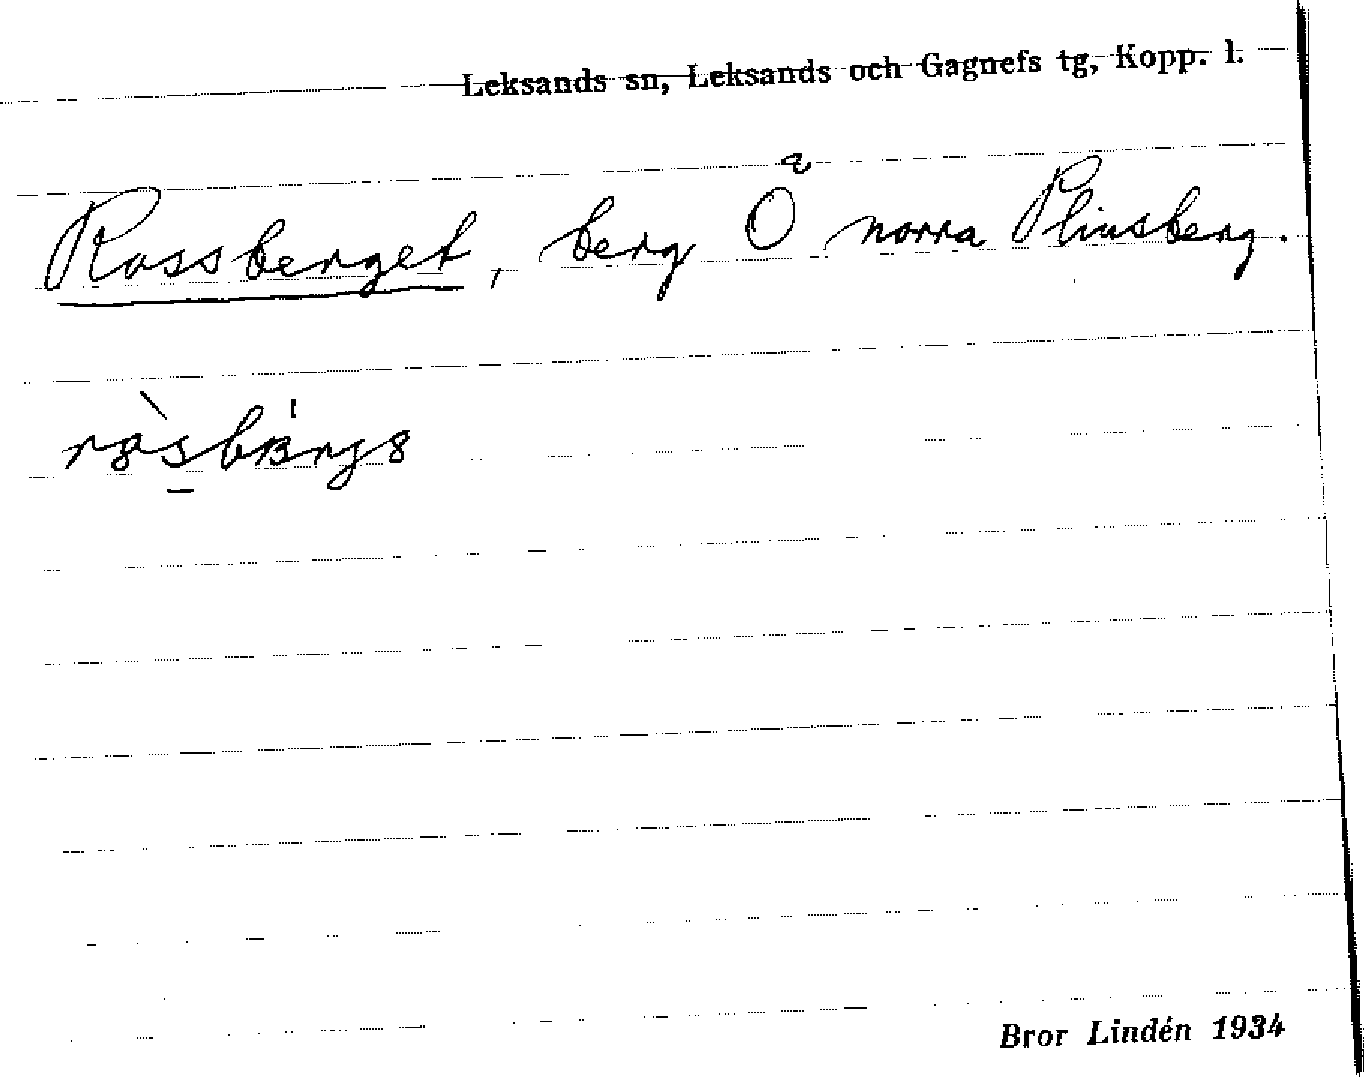 Leksands sn, Leksands och Gagnefs tg, Kopp. l.
Rossberget, berg Ö norra Plinsberg.
Bror Lindén 1934